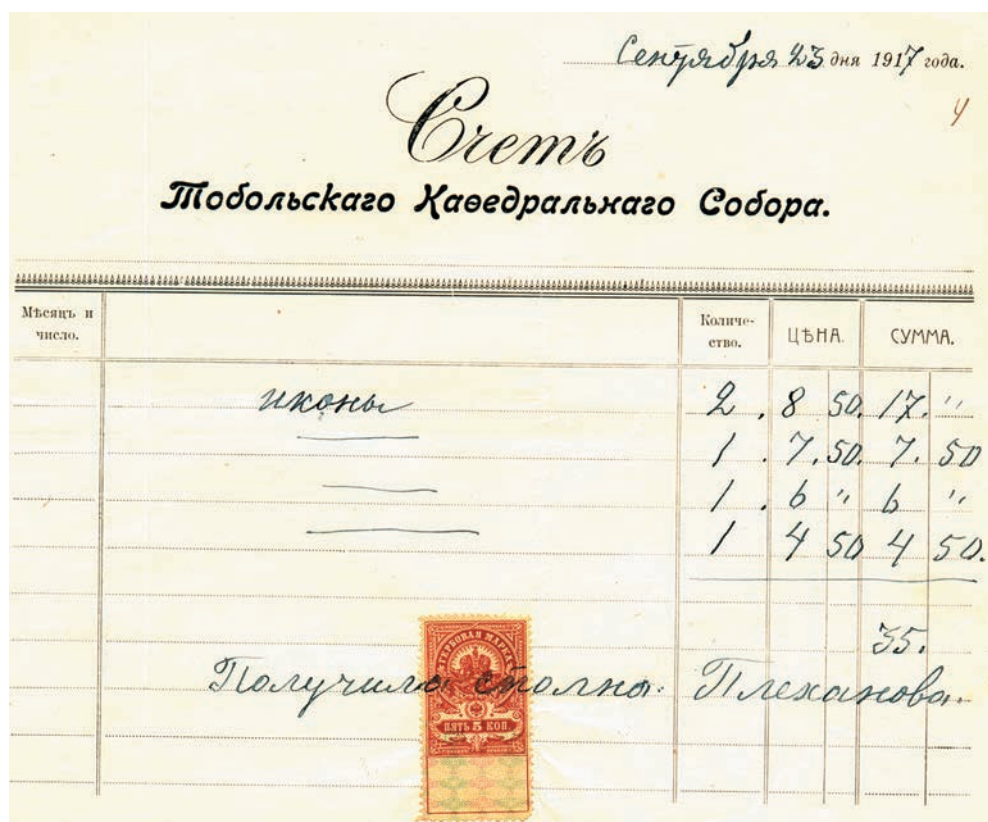 Сентября 23 дня 1917 года.
4
Счетъ
Тобольскаго Каѳедральнаго Собора.
Мѣсяцъ и число. Количе- ство. ЦѢНА. СУММА.
иконы 2. 8 50. 17. "
— 1. 7. 50. 7. 50
— 1. 6 " 6 "
— 1 4 50 4 50.
35.
ГЕРБОВАЯ МАРКА
Получила сполна. Плеханова.
ПЯТЬ 5 КОП.